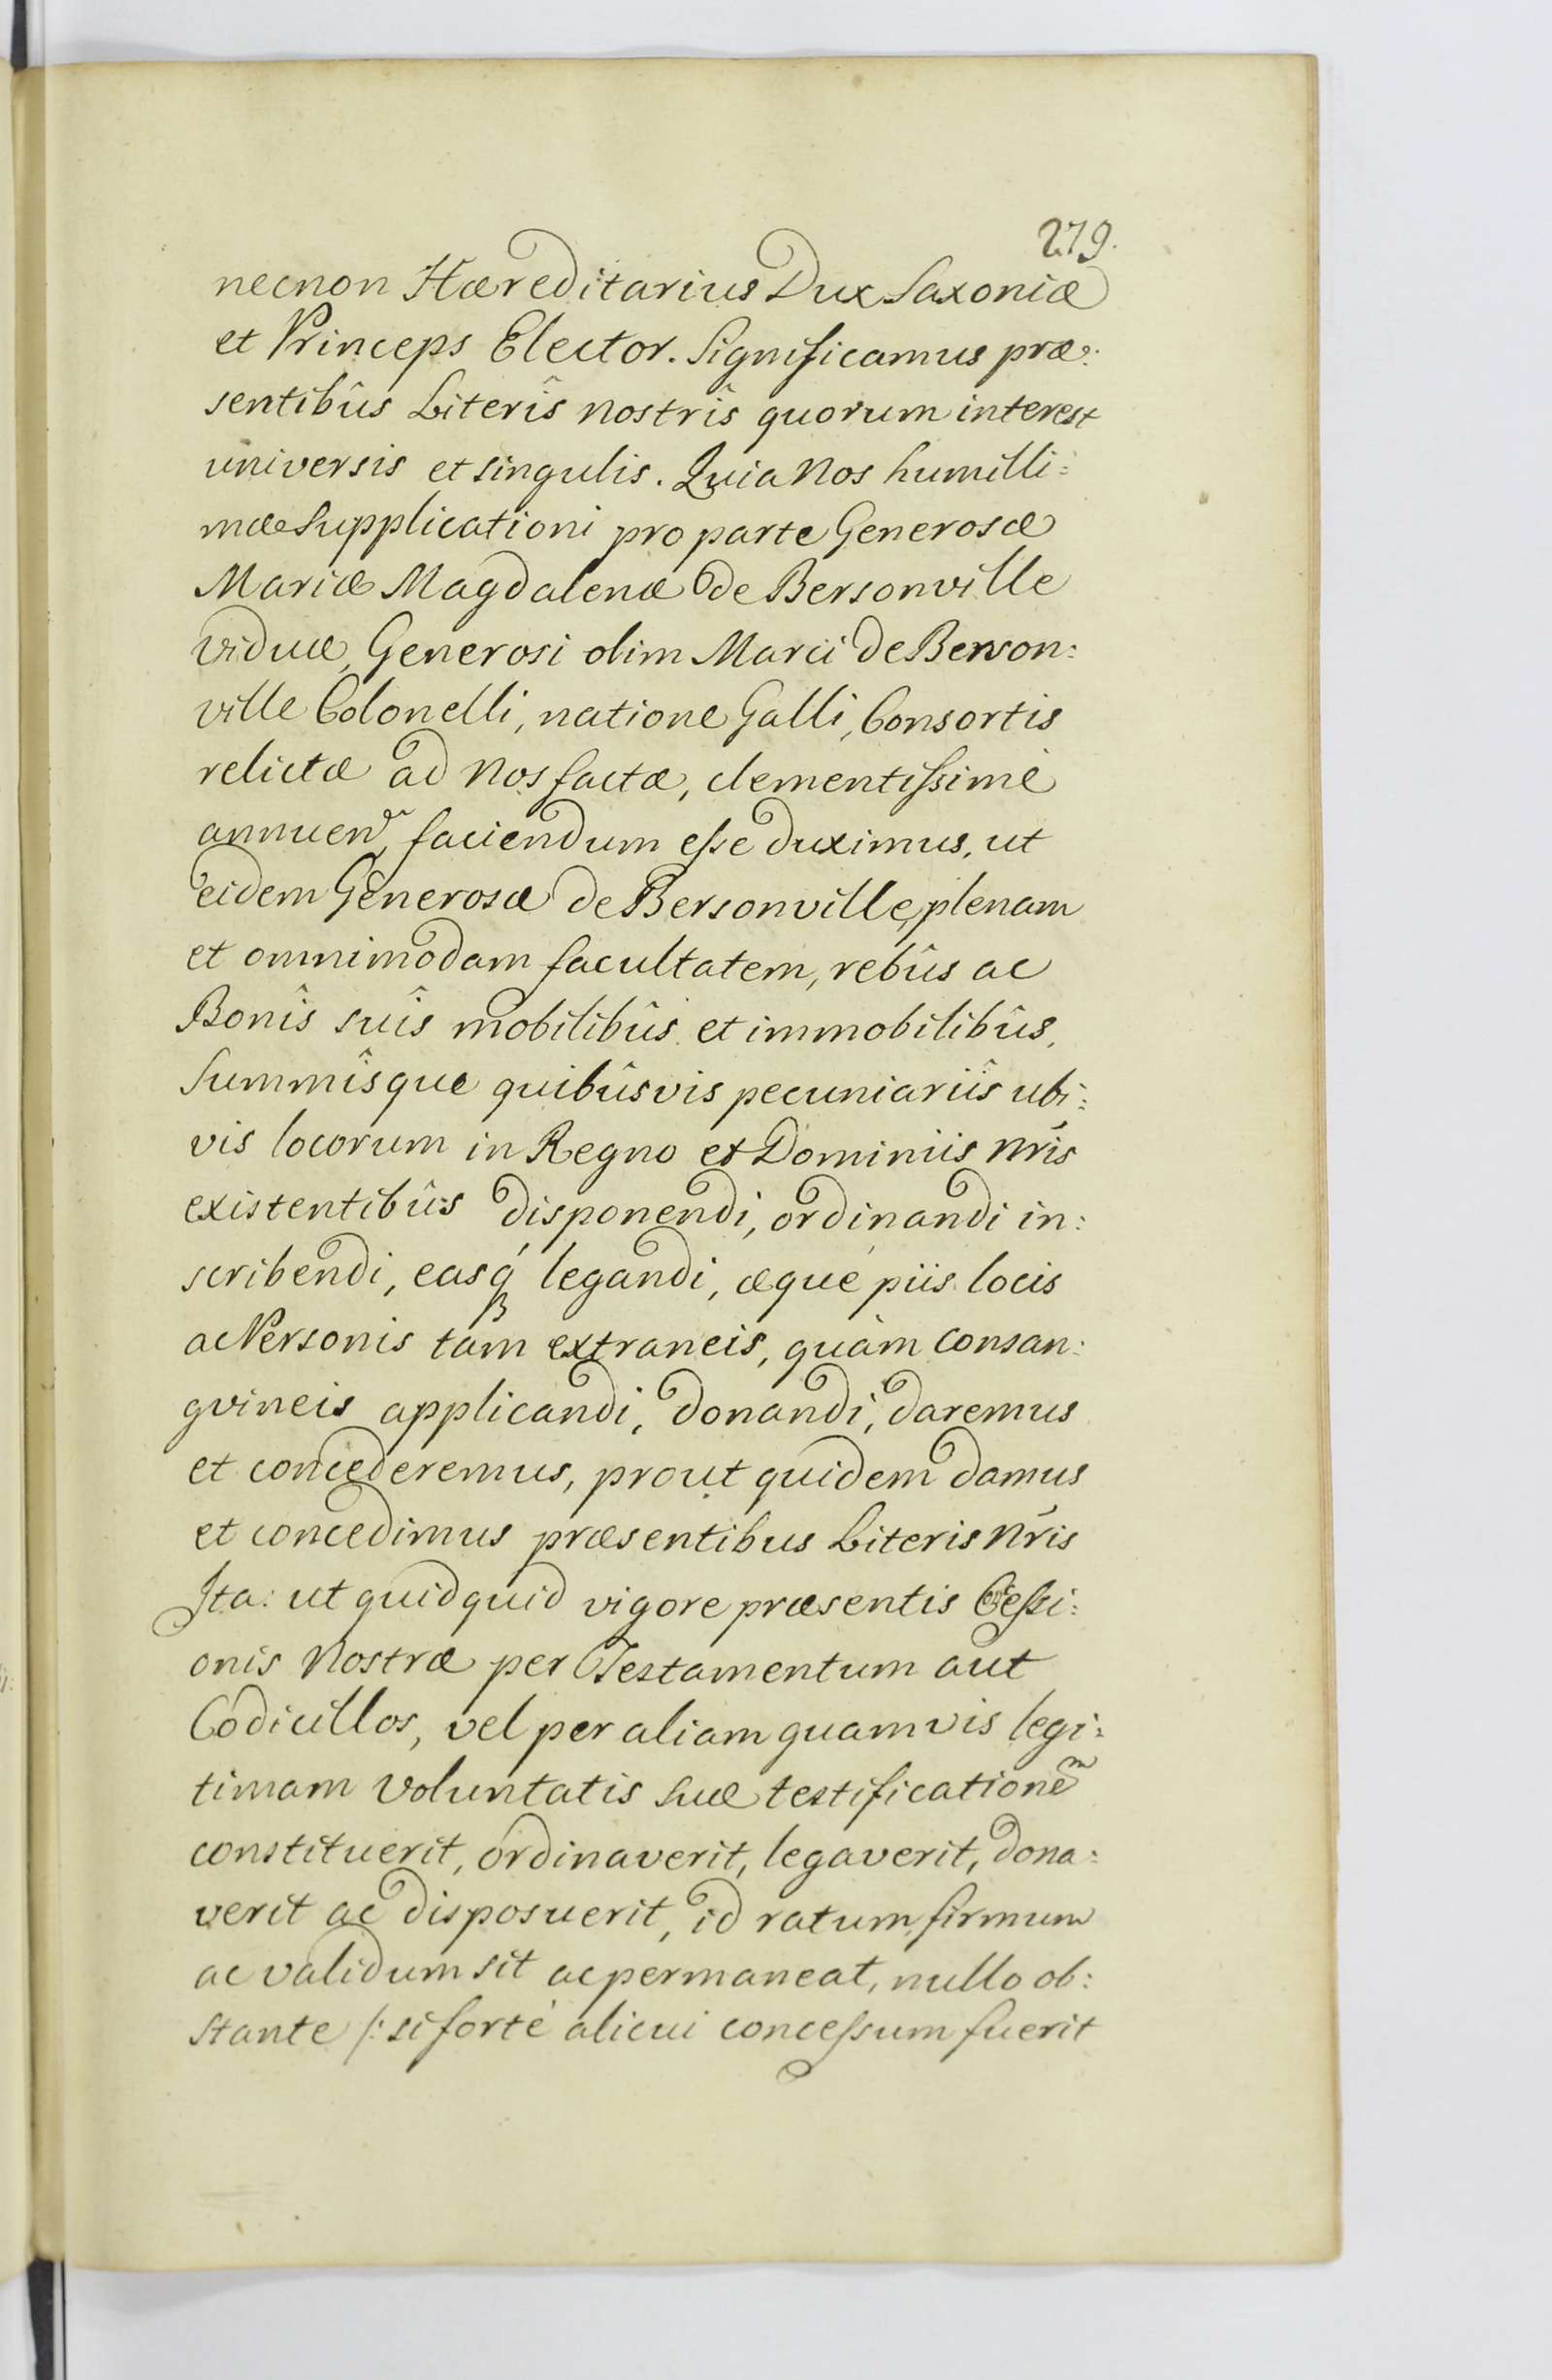 279.
necnon Hæreditarius Dux Saxoniæ
et Princeps Elector. Significamus præ:
sentibûs Literîs nostrîs quorum interest
universis et singulis. Quia Nos humilli:
mæ Supplicationi pro parte Generosæ
Mariæ Magdalenæ de Bersonville
Viduæ, Generosi olim Marci de Berson:
ville Colonelli, natione Galli, Consortis
relictæ ad Nos factæ, clementissimè
annuen, faciendum esse duximus, ut
eidem Generosæ de Bersonville, plenam
et omnimodam facultatem, rebûs ac
Bonîs suîs mobilibûs et immobilibûs,
Summîsque quibûsvis pecuniariîs ubi:
vis locorum in Regno et Dominiis nrîs
existentibûs disponendi, ordinandi in:
scribendi, easq́ legandi, æque piis locis
ac Personis tàm extraneis, quàm consan:
gvineis applicandi, donandi, daremus
et concederemus, prout quidem damus
et concedimus præsentibus Literis nr̃is
Ita: ut quidquid vigore præsentis Cessi:
onis Nostræ per Testamentum aut
Codicillos, vel per aliam quamvis legi:
timam voluntatis suæ testificationem
constituerit, ordinaverit, legaverit, dona:
verit ac disposuerit, id ratum, firmum
ac validum sit ac permaneat, nullo ob:
stante /: si fortè alicui concessum fuerit